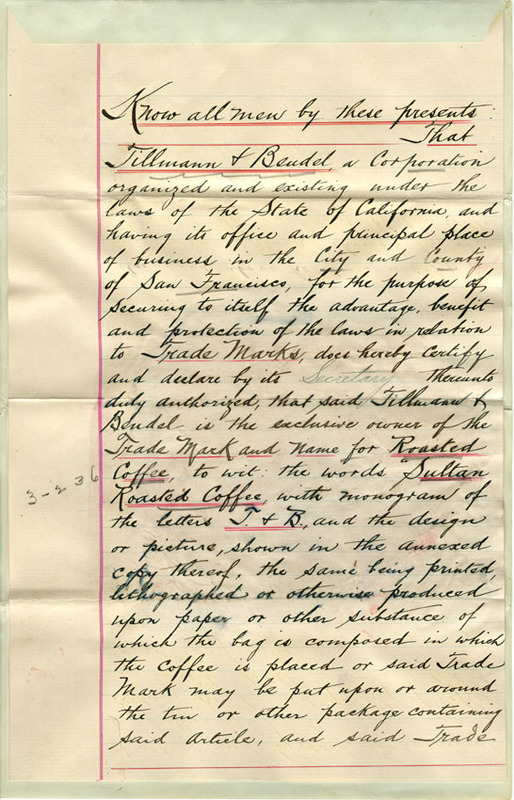 Know all men by these presents:
That
Tillmann & Bendel, a Corporation
organized and existing under the
laws of the State of California, and
having its office and principal place
of business in the City and County
of San Francisco, for the purpose of
securing to itself the advantage, benefit
and protection of the laws in relation
to Trade Marks, does hereby certify
and declare by its Secretary thereunto
duly authorized, that said Tillmann &
Bendel is the exclusive owner of the
Trade Mark and name for Roasted
Coffee, to wit: the words Sultan
Roasted Coffee, with monogram of
the letters T. & B., and the design
or picture, shown in the annexed
copy thereof, the same being printed,
lithographed or otherwise produced
upon paper or other substance of
which the bag is composed in which
the coffee is placed or said Trade
Mark may be put upon or around
the tin or other package containing
said article, and said Trade
3-2 36